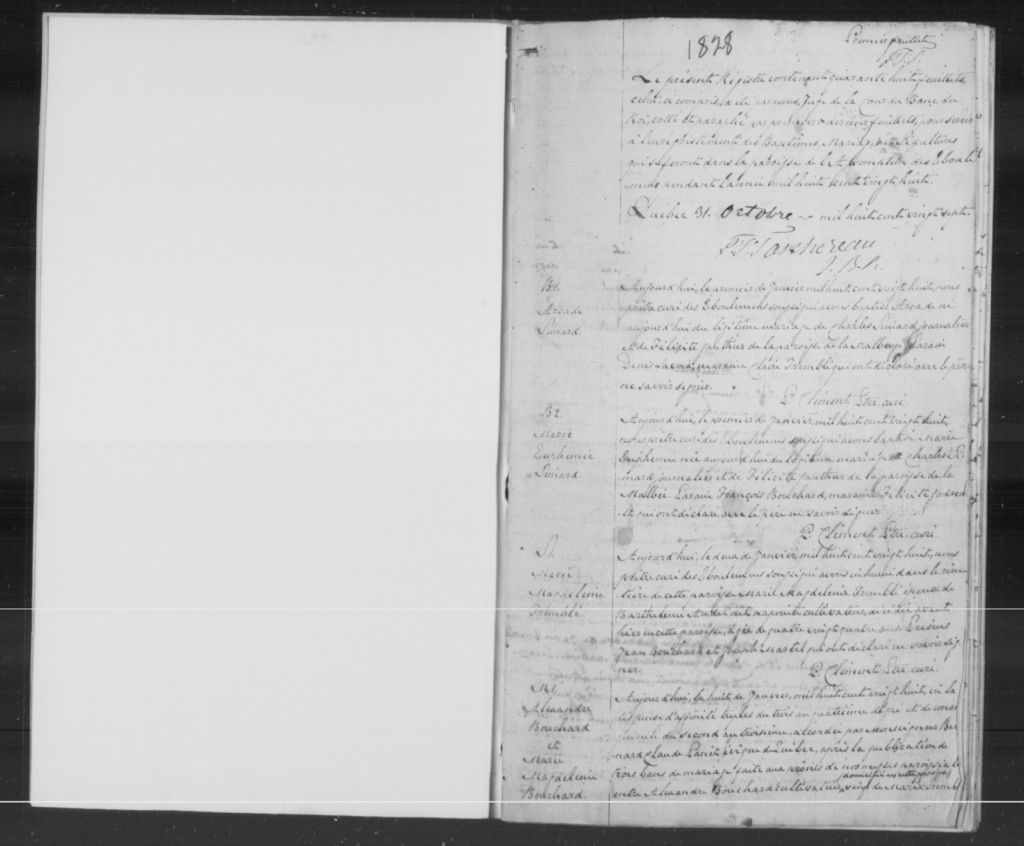 1828
Premier feuillet
T.T.
Le présent Régistre contenant quarante huit feuillets
celui-ci compris, a été par nous, Juge de la Cour du Banc du
Roi, cotté et paraphé par premier & dernier feuillets, pour servir
à l'enregistrement des Baptêmes, Mariages, et Sépultures
qui se feront dans la paroisse de l'Assomption des Eboule
mens pendant l'année mil huit cent vingt huit.
Québec 31. Octobre mil huit cent vingt sept.
T.T. Taschereau
J.B.R.
B1.
Arcade
Simard.
Aujourd'hui, le premier de Janvier mil huit cent vingt huit, nous
prêtre curé des Eboulemens soussigné avons baptisé Arcade né
aujourd'hui du légitime mariage de Charles Simard journalier
& de Félicité gauthier de la paroisse de la Malbay. Parain
Denis marraine Claire Tremblé qui ont déclaré avec le père
ne savoir signer.
P. Clément Ptre. curé.
B2.
Marie
Euphemie
Simard
Aujourd'hui, le premier de Janvier, mil huit cent vingt huit,
nous prêtre curé des Eboulemens soussigné avons baptisé Marie
née aujourd'hui du légitime mariage de Charles Si
mard, journalier et de Félicité gauthier de la paroisse de la
Malbée. Parain François Bouchard, maraine Félicité
et qui ont déclaré avec le père ne savoir signer.
P. Clément Ptre. curé.
S1.
Marie
Magdeleine
Tremblé.
Aujourd'hui, le deux de Janvier, mil huit cent vingt huit, nous
prêtre curé des Eboulemens soussigné avons inhumé dans le cime
tière de cette paroisse Marie Magdeleine Tremblé épouse de
Barthelemi Audet dit Lapointe cultivateur, décédée avant
hier en cette paroisse, agée de quatre vingt quatre ans. Présens
Jean Bouchard et Joseph Martel qui ont déclaré ne savoir sig
ner.
P. Clément Ptre curé.
M1,
Alexandre
Bouchard
et
Marie
Magdeleine
Bouchard.
Aujourd'hui, le huit de Janvier, mil huit cent vingt huit, vu la
dispense d'affinité du trois au quatrième degré et de consan
guinité du second au troisième, accordée par Monseigneur Ber
nard Claude Panet évêque de Québec, après la publication de
trois bans de mariage faite aux prônes de nos messes paroissiales
domicilié en cette paroisse
entre Alexandre Bouchard cultivateur,